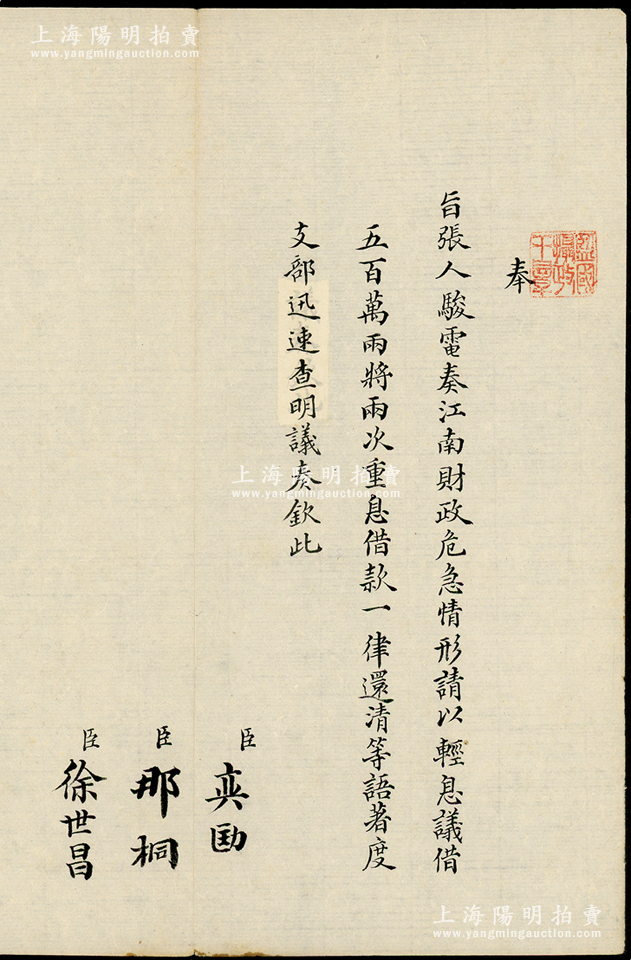 上海陽明拍賣
www.yangmingauction.com
監國
攝政
王寶
奉
旨張人駿電奏江南財政危急情形請以輕息議借
五百萬兩將兩次重息借款一律還清等語著度
支部迅速查明議奏欽此
臣奕劻
臣那桐
臣徐世昌
上海陽明拍賣
www.yangmingauction.com
上海陽明拍賣
www.yangmingauction.com